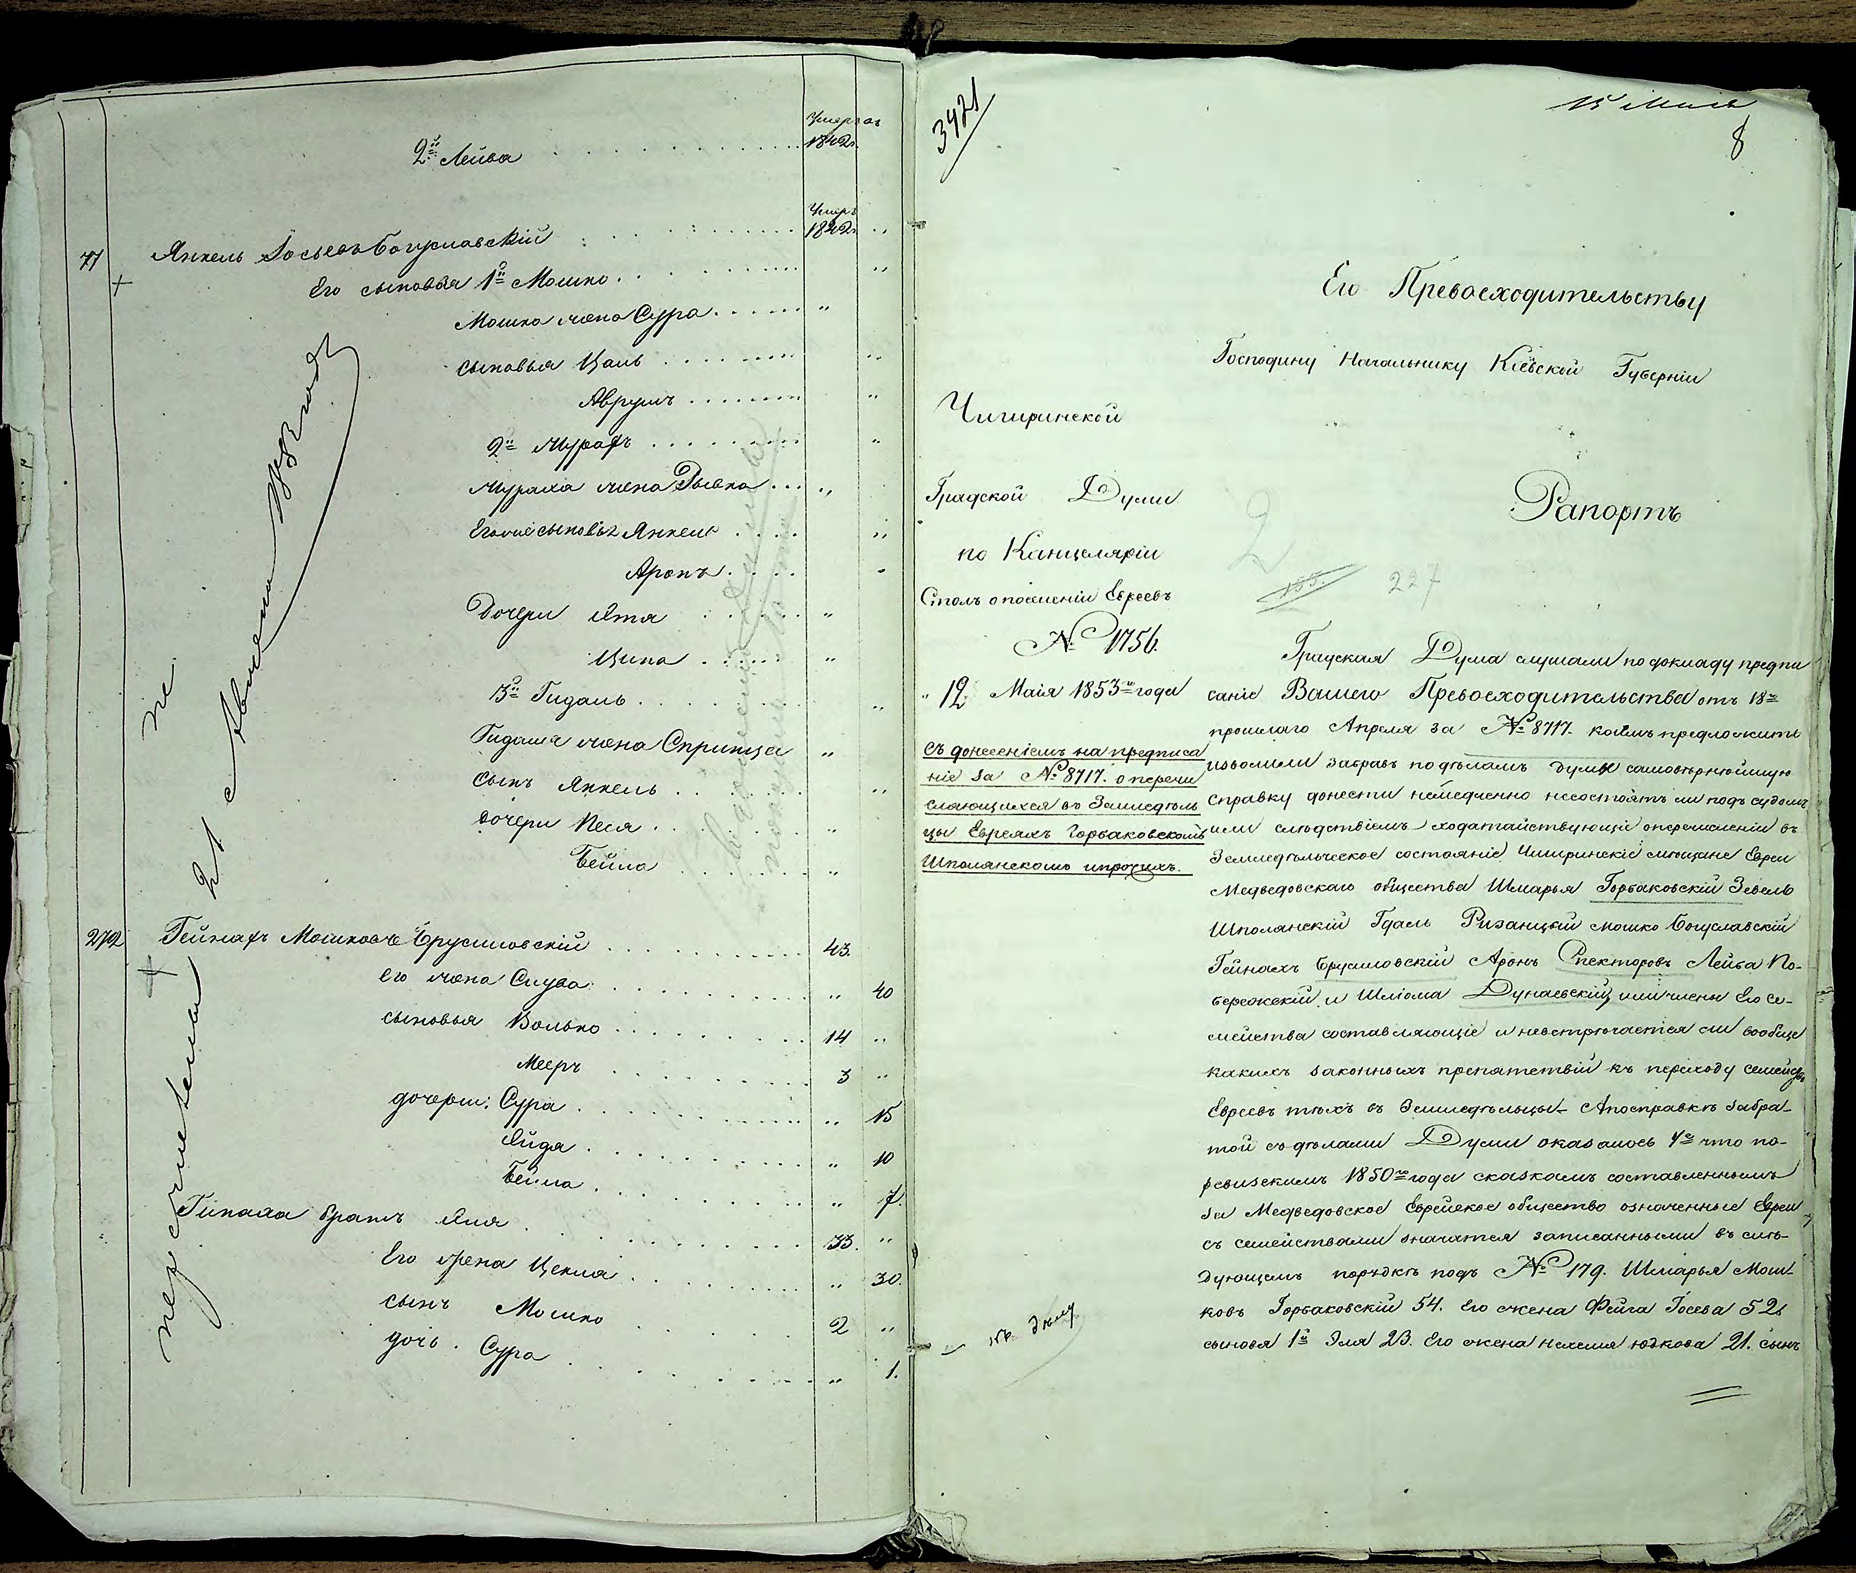 2й Лейба умеръ 1842
71 Янкель Іосьевъ Богуславскій Умеръ 1822
Его сыновья 1й Мошко
Мошко жена Сура
сыновья Цаль
Аврумъ
2й Мурахъ
Мураха жена Рывка
Его же сыновья Янкель
Аронъ
Дочери Этя
Ципа
3й Гидаль
Гидаля жена Спринца
сынъ Янкель
дочери Песя
Бейла
272 Гейнахъ Мошковъ Брусиловскій 43.
его жена Слува 40
сыновья Волько 14
Мееръ 3
дочери: Сура 15
Эйда 10
Бейла 7.
братъ Эля 33.
Его жена Цекла 30.
сынъ Мошко 2
дочь. Сура 1.
3421
15 Мая
8
Его Превосходительству
Господину Начальнику Кіевской Губерніи
Чигиринской
Градской Думы
по Канцеляріи
Столъ о поселеніи Евреевъ
№ 1756.
12 Маія 1853го года
съ донесеніемъ на предписа
ніе за № 8717. о перечи
сляющихся въ Земледѣль
цы Евреяхъ Горбаковскомъ
Шполянскомъ и прочихъ.
Рапортъ
2
155.
227
Градская Дума слушали по докладу предпи
саніе Вашего Превосходительства отъ 18го
прошлаго Апреля за № 8717. коимъ предложить
изволили забравъ по дѣламъ думы самовѣрнѣйшую
справку донести немедленно несостоятъ ли подъ судомъ
или слѣдствіемъ ходатайствующіе о перечисленіи въ
Земледѣльческое состояніе Чигиринскіе мѣщане Евреи
Медведовскаго общества Шмарья Горбаковскій Зевель
Шполянскій Гдаль Ризанцкій Мошко Богуславскій
Гейнахъ Брусиловскій Аронъ Спекторовъ Лейба По-
бережскій и Шліома Дунаевскій или члены Его се-
мейства составляющіе и невстрѣчается ли вообще
какихъ законныхъ препятствій къ переходу семействъ
Евреевъ тѣхъ въ Земледѣльцы. А по справкѣ забра-
той съ дѣлами Думы оказалось 1е что по
ревизскимъ 1850го года сказкамъ составленнымъ
за Медведовское Еврейское общество означенные Евреи
съ семействами значатся записанными въ слѣ-
дующемъ порядкѣ подъ № 179. Шмарья Мош-
ковъ Горбаковскій 54. Его жена Фейга Іосева 52.
сыновя 1й Эля 23. Его жена Нехемя Юдкова 21. сынъ
къ дѣлу